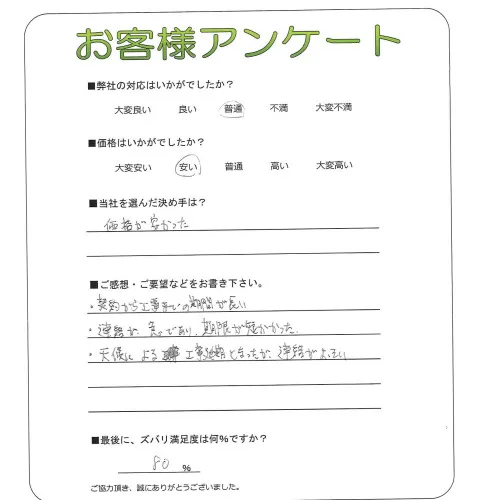 お客様アンケート
■弊社の対応はいかがでしたか？
大変良い 良い 普通 不満 大変不満
■価格はいかがでしたか？
大変安い 安い 普通 高い 大変高い
■当社を選んだ決め手は？
価格が安かった
■ご感想・ご要望などをお書き下さい。
・契約から工事までの期間が長い
・連絡が急であり、期限が短かかった
・天候による 工事延期となったが、連絡が
■最後に、ズバリ満足度は何％ですか？
80 %
ご協力頂き、誠にありがとうございました。